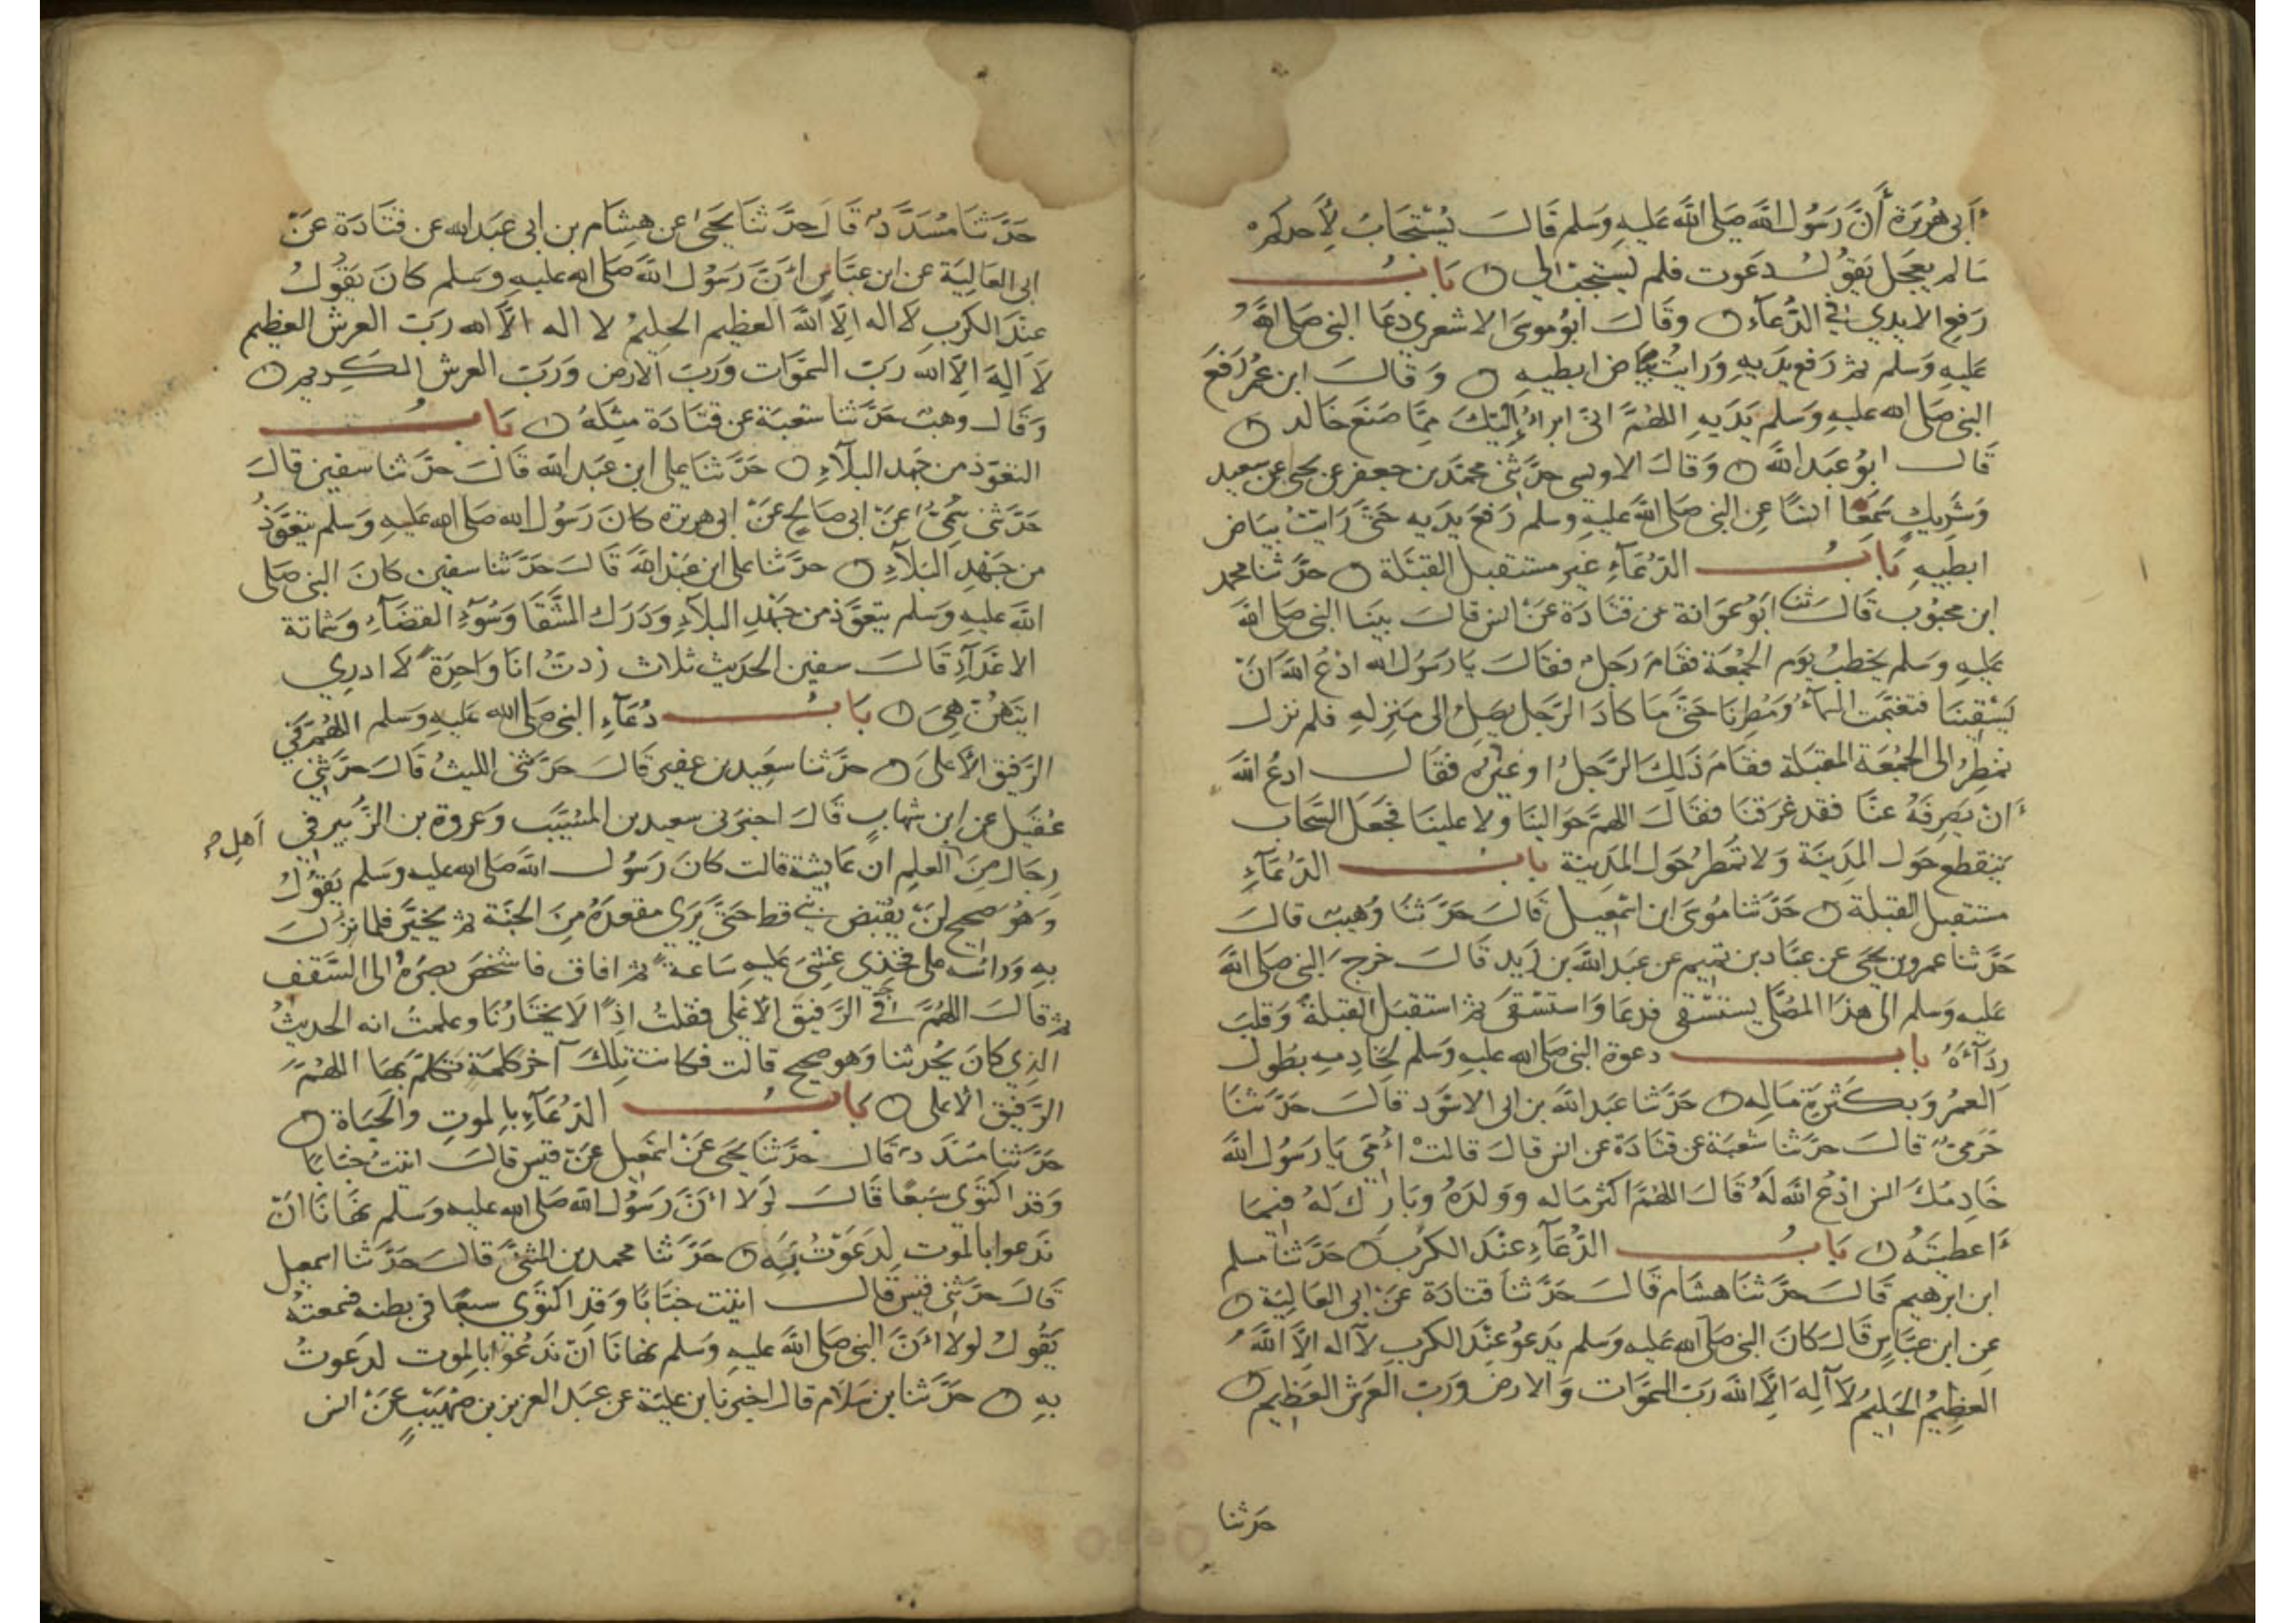 أَبي هُرَيرَة أَنَّ رَسُول الله صَلى الله عَليهِ وَسَلم قَالَ يُسْتَجَابُ لِأَحدِكُم
مَا لم يعجَل يَقُولُ دَعَوت فلم يُسْتجَب لي ه بَابُ
رَفع الايدي في الدُّعَآء ه وقَالَ ابُو موسَى الاشعري دعَا النبي صَلى الله
عَليهِ وَسَلم ثم رَفع يَدَيهِ وَرَايتُ بيَاض ابطيهِ ه وَقَالَ ابن عُمَر رَفعَ
النبي صَلى الله عليهِ وَسَلم يَدَيهِ اللهُمَّ اني ابرأُ إِلَيْكَ مِمَّا صَنَعَ خَالد ه
قَالَ ابُو عَبد الله ه وَقَالَ الاويسي حدَّثني محمد بن جعفر عن يحيى بن سعيد
وَشَرِيكٍ سَمِعَا انسًا عن النبي صَلى الله عَليهِ وسلم رَفعَ يَدَيهِ حَتى رَايتُ بيَاض
ابطيهِ بَابُ الدُّعَآءِ غير مستقبل القبْلة ه حدَّثنا محمد
ابن محبُوب قَالَ ثنا ابُو عَوَانة عن قتَادَة عَن انس قالَ بينَا النبي صَلى الله
عَليهِ وَسَلم يخطبُ يَوم الجمُعَة فقامَ رَجلٌ فقالَ يا رَسُول الله ادْعُ الله انْ
يَسْقِيَنَا فتغيَّمت السمآءُ وَمُطِرنَا حَتى مَا كادَ الرَّجل يَصلُ الى مَنزِلهِ فلم نزل
نمطرُ الى الجمُعَة المقبلة فقامَ ذَلِكَ الرَّجلُ اوغيرُهُ فقَالَ ادعُ الله
أَن يَصرِفهُ عنَّا فقد غرقنَا فقالَ اللهمَّ حَوَالينَا وَلا علينَا فجَعلَ السَّحَاب
يتقطع حَول المدِينَة وَلا تُمطرُ حَول المدينة بابُ الدُّعَآءِ
مستقبل القبلة ه حَدَّثنا مُوسَى ابن اسمَعِيل قَالَ حَدَّثنَا وُهيب قالَ
حَدَّثنا عمرو بن يحيَى عن عبَّاد بن تميم عن عبدالله بن زَيد قَالَ خرجَ النبي صَلى الله
عَليهِ وَسَلم الى هذا المصَلَّى يستسْقِي فدعَا وَاستسْقَى ثم استقبَل القبلةَ وَقلبَ
رِدَآءَهُ باب دعوة النبي صَلى الله عليهِ وَسَلم لخادِمِهِ بطُول
العمُرِ وَبكثرَةِ مَالِهِ ه حَدَّثنا عبَد الله بن ابى الاسْوَد قَالَ حَدَّثنَا
حَرَمِيٌّ قالَ حدَّثنا شُعبَة عن قتَادَة عن انس قالَ قالتْ أُمِّي يَا رَسُول الله
خَادِمُكَ انس ادْعُ الله لَهُ قَالَ اللهُمَّ اكثر مَاله ووَلدَهُ وبَارِك لَهُ فيمَا
أَعطيتَهُ ه بَابُ الدُّعَآءِ عندَ الكَرْبِ ه حَدَّثنا مسلم
ابن ابرهيم قَالَ حدَّثنَا هشَام قَالَ حَدَّثنَا قتَادَة عَن ابى العَالِيَة ه
عن ابن عبَّاسٍ قَالَ كَانَ النبي صَلى الله عَليهِ وسَلم يَدعُو عندَ الكرب لآ اله الاَّ اللهُ
العظِيمُ الحَلِيمُ لاَ آلهَ الاَّ الله رَبّ السموَات وَالارض وَرَبّ العَرش العَظِيم ه
حدثنا
حَدَّثنَا مُسَدَّدٌ قَالَ حدَّثنَا يَحيَى عن هِشَام بن ابى عَبد الله عن قتَادَة عَنْ
ابى العَالِيَة عن ابن عبَّاسٍ أنَّ رَسُول الله صَلى الله عليهِ وسَلم كانَ يَقُولُ
عندَ الكربِ لاَ اله الاَّ الله العظيم الحليمُ لا اله الاَّ الله رَبّ العرش العظيم
لاَ الهَ الاَّ الله رَبّ السمَوَات وَرَبّ الارض وَرَبّ العرش الكَرِيم ه
وَقَالَ وهبٌ حَدَّثنا شعبَة عن قتَادَة مثلَهُ ه بَابُ
التعَوّذ من جَهد البلآءِ ه حَدَّثنَا علي ابن عَبد الله قَالَ حدَّثنا سفين قالَ
حَدَّثني سُمَيٌّ عَنْ ابى صَالحٍ عَنْ ابى هريرة كانَ رَسُول الله صَلى الله عَليهِ وَسَلم يتعَوَّذُ
من جَهْدِ البَلآءِ ه حدَّثنا على ابن عَبد الله قَالَ حَدَّثنا سفين كانَ النبي صَلى
الله عَليهِ وَسَلم يتعَوَّذ من جَهْدِ البلآءِ وَدَرَك الشَّقَا وَسُوءِ القضَآءِ وَشماتة
الاعْدَآءِ قَالَ سفين الحَديث ثلاث زدتُّ انَا وَاحِدَةً لاَ ادري
ايتهنَّ هِيَ ه بَابُ دُعَآءِ النبي صَلى الله عَليهِ وَسَلم اللهُمَّ في
الرَّفِيق الأَعلى ه حدَّثنا سَعِيد بن عفير قَالَ حَدَّثنى الليثُ قَالَ حَدَّثني
عُقيل عن ابن شهابٍ قَالَ اخبرَني سعيد بن المسَيّب وَعروة بن الزُّبير في
أهلِ
رِجَال مِنَ العلمِ ان عَايشة قالت كانَ رَسُول الله صَلى الله عليهِ وسَلم يَقُولُ
وَهُوَ صَحيح لَنْ يُقبَض نبي قط حَتى يَرَى مقعدَهُ مِنَ الجنَّة ثم يخيَّر فلما نزلَ
بهِ وَرَاسهُ على فخذِي غُشيَ عَليهِ سَاعَةً ثم افاق فاشخصَ بصرَهُ الى السَّقف
ثم قالَ اللهُمَّ في الرَّفيق الأعلى فقلتُ اذًا لاَ يختَارُنَا وعلمتُ انه الحديثُ
الذِي كانَ يحُدثنا وَهو صحيح قالت فكانت تلكَ آخر كلمَة تكلَّم بهَا اللهُمَّ
الرَّفيق الاعلى ه بَابُ الدُّعَآءِ بالموتِ والحَيَاة ه
حَدَّثنا مسَدَّدٌ قَال حدَّثنَا يحيَى عَنْ اسمَعِيل عَنْ قيس قالَ اتيتُ خبَّابًا
وَقد اكتوَى سَبعًا قَالَ لَوْلا أنَّ رَسُول الله صَلى الله عليهِ وسَلم نهَانَا انْ
نَدعوا بالموت لدَعَوْتُ بهِ ه حَدَّثنا محمد بن المثنى قالَ حَدَّثنا اسمعيل
قَالَ حدَّثني قيس قَالَ اتيت خبَّابًا وَقد اكتوَى سبعًا في بطنه فسمعتهُ
يَقُولُ لولا أنَّ النبي صَلى الله عليهِ وَسَلم نهانَا أَنْ نَدعُوَ بالموت لدعَوتُ
بهِ ه حَدَّثنا بن سَلاَم قال اخبرنا بن عُليَّة عن عبَد العزيز بن صُهَيْبٍ عَنْ انس